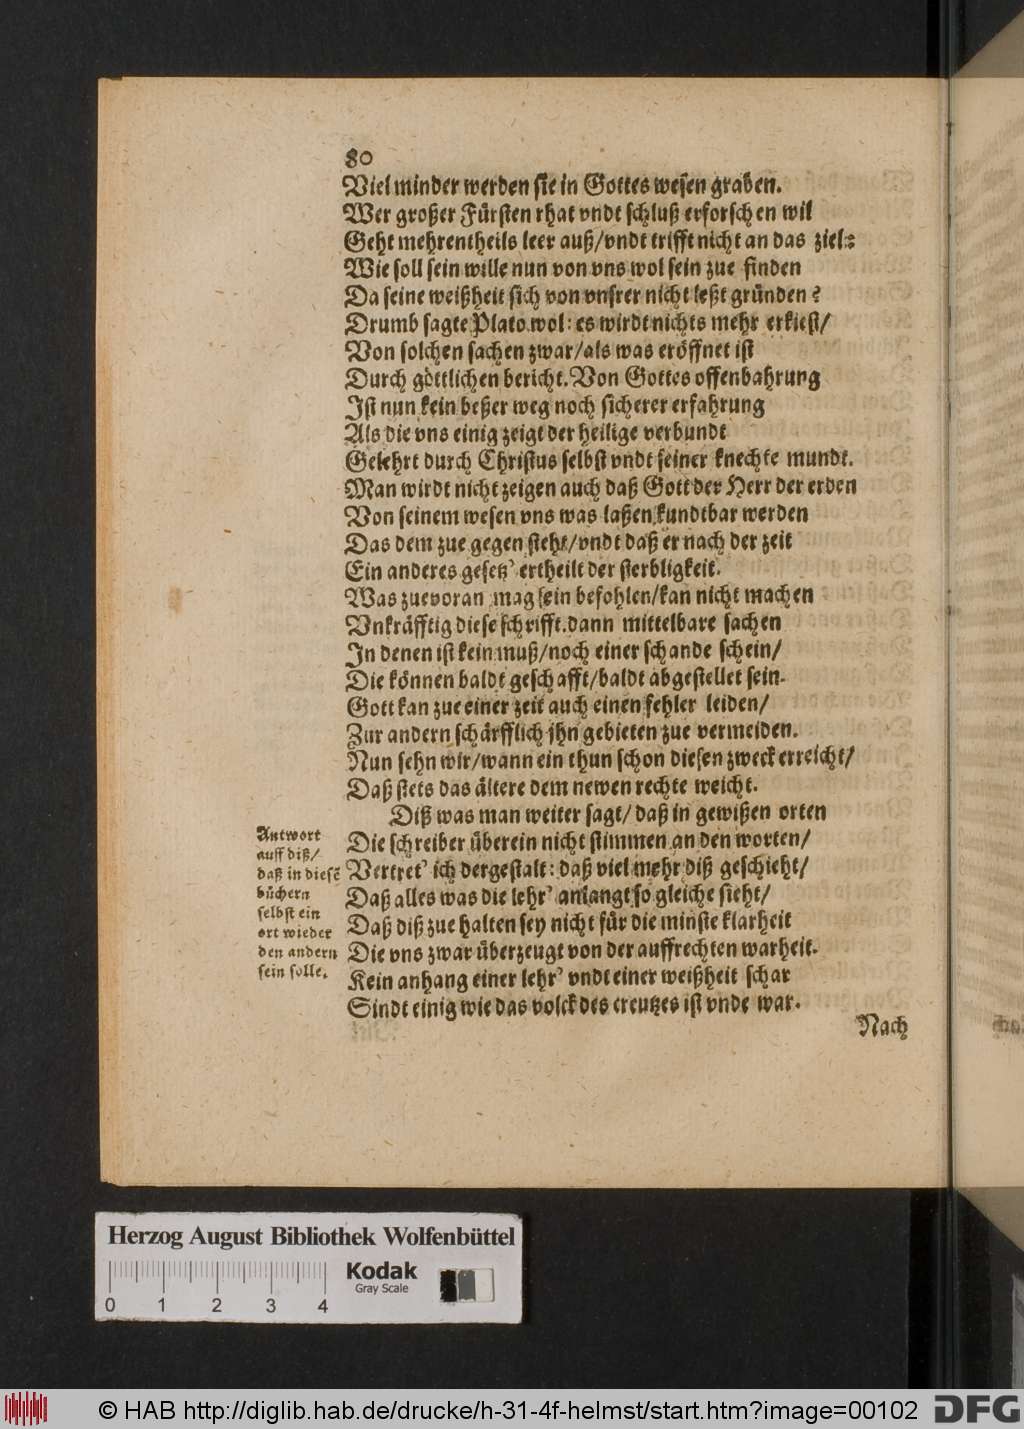 80
Viel minder werden sie in Gottes wesen graben.
Wer großer Fürsten rhat vndt schluß erforschen wil
Geht mehrentheils leer auß/vndt trifft nicht an das ziel:
Wie soll sein wille nun von vns wol sein zue finden
Da seine weißheit sich von vnsrer nicht leßt gründen?
Drumb sagte Plato wol: es wirdt nichts mehr erkiest/
Von solchen sachen zwar/als was eröffnet ist
Durch göttlichen bericht. Von Gottes offenbahrung
Ist nun kein beßer weg noch sicherer erfahrung
Als die vns einig zeigt der heilige verbundt
Gelehrt durch Christus selbst vndt seiner knechte mundt.
Man wirdt nicht zeigen auch daß Gott der Herr der erden
Von seinem wesen vns was laßen kundtbar werden
Das dem zue gegen steht/vndt daß er nach der zeit
Ein anderes gesetz' ertheilt der sterbligkeit.
Was zuevoran mag sein befohlen/kan nicht machen
Vnkräfftig diese schrifft. dann mittelbare sachen
In denen ist kein muß/noch einer schande schein/
Die können baldt geschafft/baldt abgestellet sein.
Gott kan zue einer zeit auch einen fehler leiden/
Zur andern schärfflich jhn gebieten zue vermeiden.
Nun sehn wir/wann ein thun schon diesen zweck erreicht/
Daß stets das ältere dem newen rechte weicht.
Diß was man weiter sagt/ daß in gewißen orten
Die schreiber überein nicht stimmen an den worten/
Vertret' ich dergestalt: daß viel mehr diß geschieht/
Daß alles was die lehr' anlangt so gleiche sieht/
Daß diß zue halten sey nicht für die minste klarheit
Die vns zwar überzeugt von der auffrechten warheit.
Kein anhang einer lehr' vndt einer weißheit schar
Sindt einig wie das volck des creutzes ist vnde war.
Antwort
auff diß/
daß in diesē
büchern
selbst ein
ort wieder
den andern
sein solle.
Nach
Herzog August Bibliothek Wolfenbüttel
Kodak
Gray Scale
0 1 2 3 4
© HAB http://diglib.hab.de/drucke/h-31-4f-helmst/start.htm?image=00102
DFG